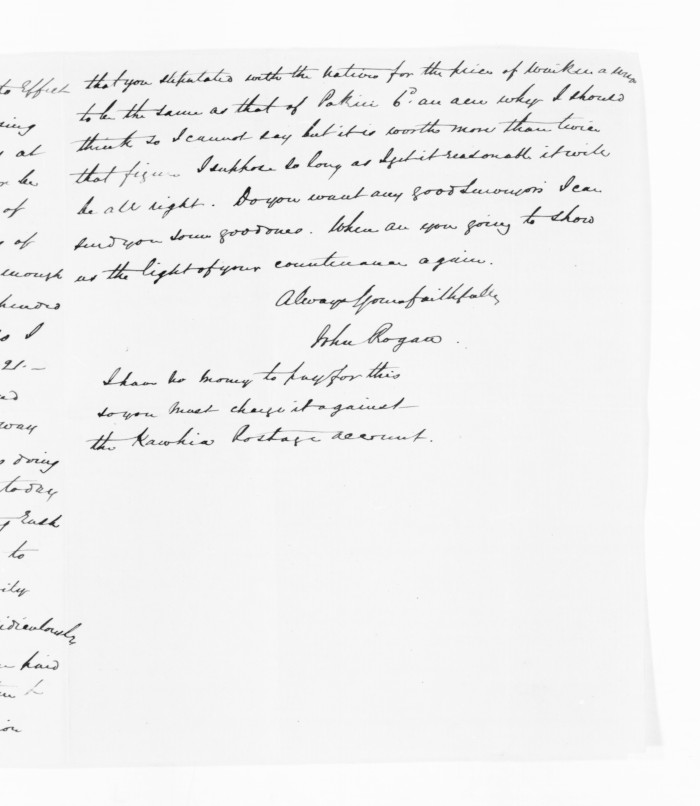 to Effect
sing
at
be
of
of
enough
hended
so I
21.—
way
doing
today
Eash
to
ridiculously
paid
ion
that you stipulated with the natives for the price of a
to be the same as that of 6d. an acre why I should
think so I cannot say but it is worth more than twice
that figure I suppose so long as I get it reasonable it will
be all right. Do you want any good Surveyors I can
send you some good ones. When are you going to show
us the light of your countenance again.
Always Yours faithfully
John Rogan.
I have no money to pay for this
so you must charge it against
the Kawhia Postage account.